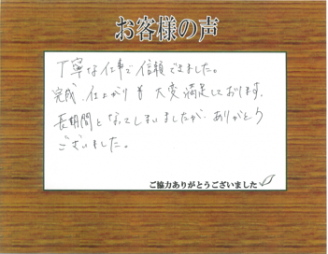 お客様の声
丁寧な仕事で信頼できました。
完成、仕上がりも大変満足しております。
長期間となってしまいましたが、ありがとう
ございました。
ご協力ありがとうございました